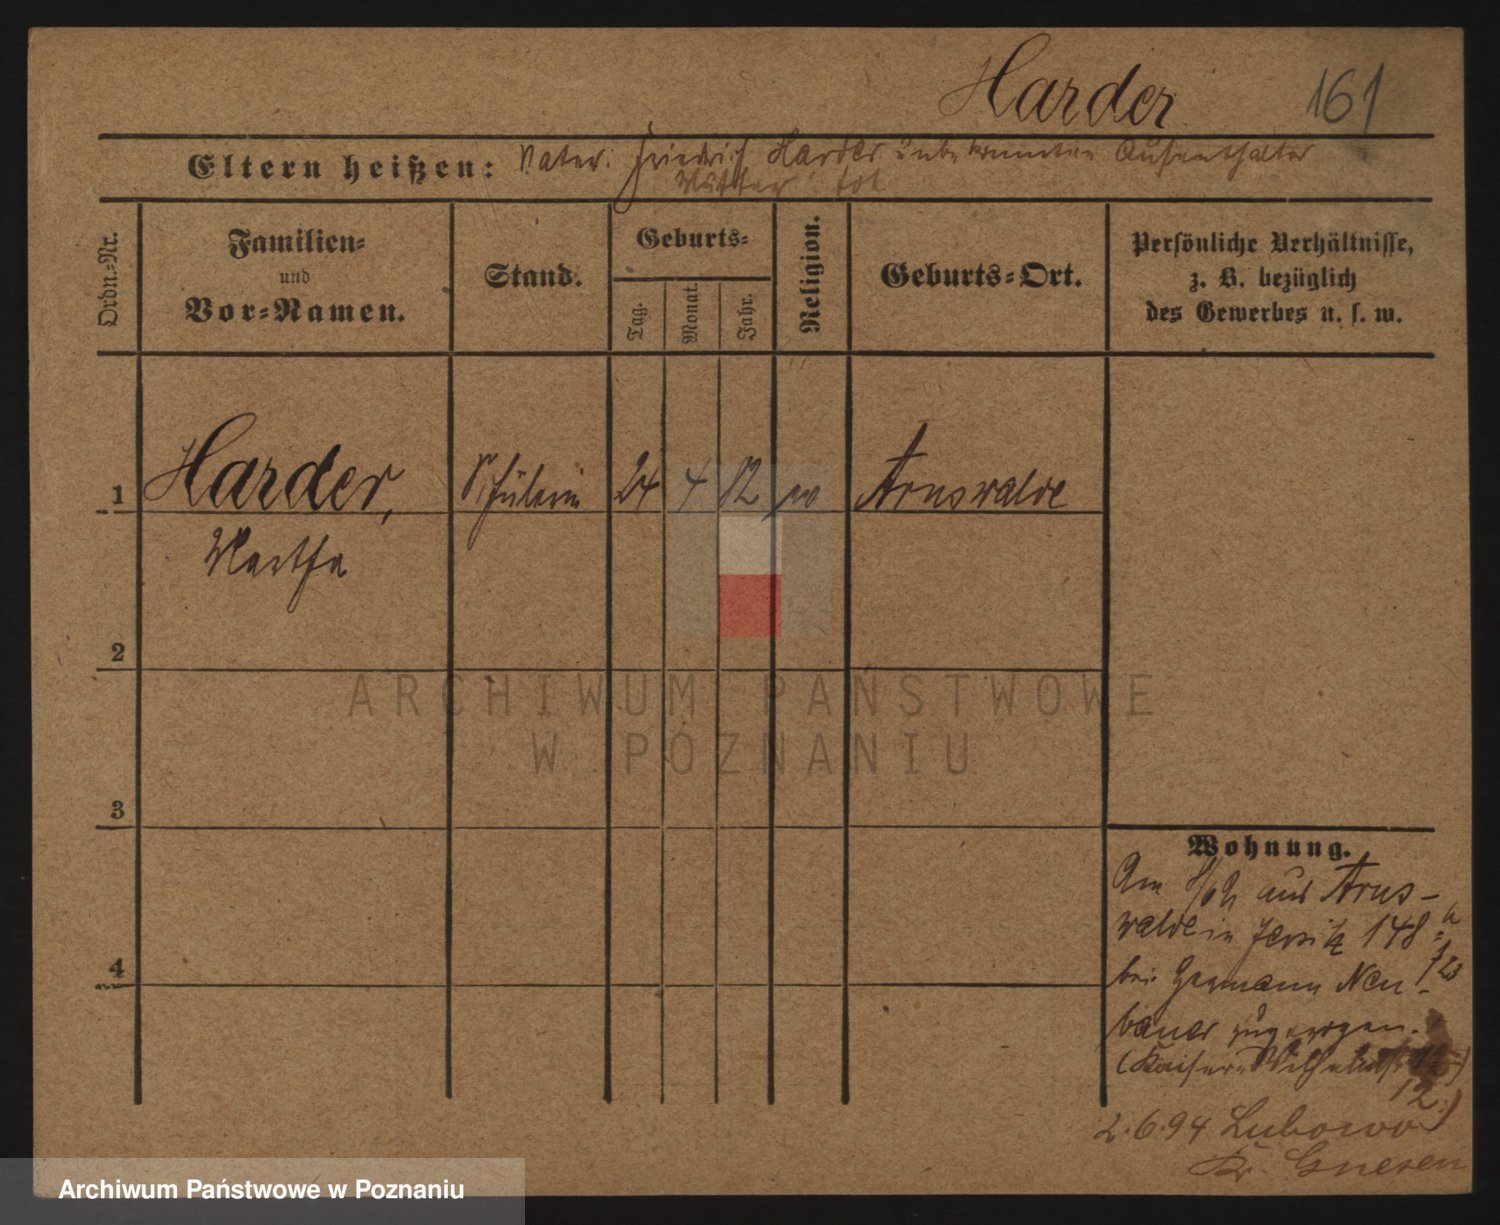 Harder 161
Eltern heißen: Vater: Friedrich Harder unbekannten Aufenthalter
Mutter tot
Ordn.-Nr.
Familien-
und
Vor-Namen.
Stand.
Geburts-
Tag.
Monat.
Jahr.
Religion.
Geburts-Ort.
Persönliche Verhältnisse,
z. B. bezüglich
des Gewerbes u. s. w.
1 Harder, Schülerin 24 4 82 Arnswalde
Martha
2
3
4
Wohnung.
Am aus Arns-
walde in Jersitz 148
bei Hermann Neu-
bauer zugezogen.
(Kaiser-Wilhelmstr.
12.)
2.6.94 Lubowo
Kr. Gnesen
ARCHIWUM PAŃSTWOWE
W POZNANIU
Archiwum Państwowe w Poznaniu